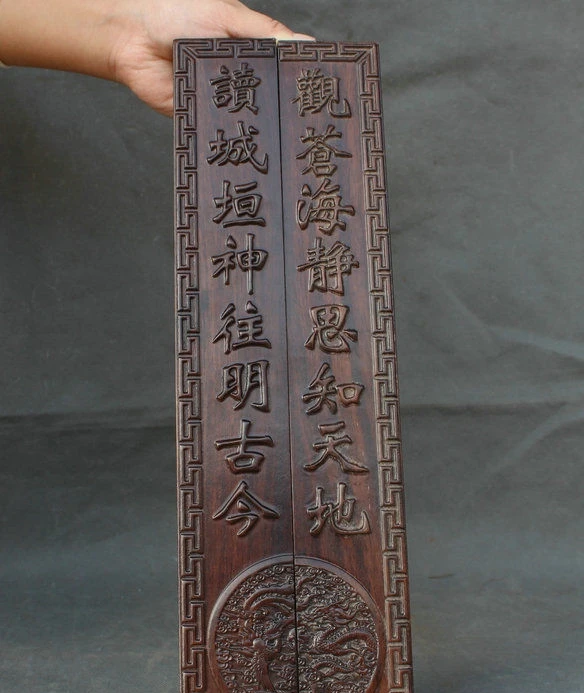 觀蒼海靜思知天地
讀城垣神往明古今